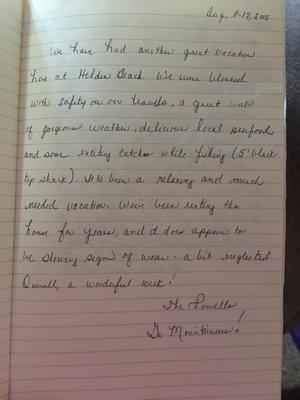 Aug. 8-15, 2015
We have had another great vacation
here at Holden Beach. We were blessed
with safety on our travels, a great week
of gorgeous weather, delicious local seafood
and some exciting catches while fishing (5' black
tip shark). It's been a relaxing and much
needed vacation. We've been renting this
house for years, and it does appear to
be showing signs of wear - a bit neglected
Overall, a wonderful week!
The Powells
Go Mountineers!